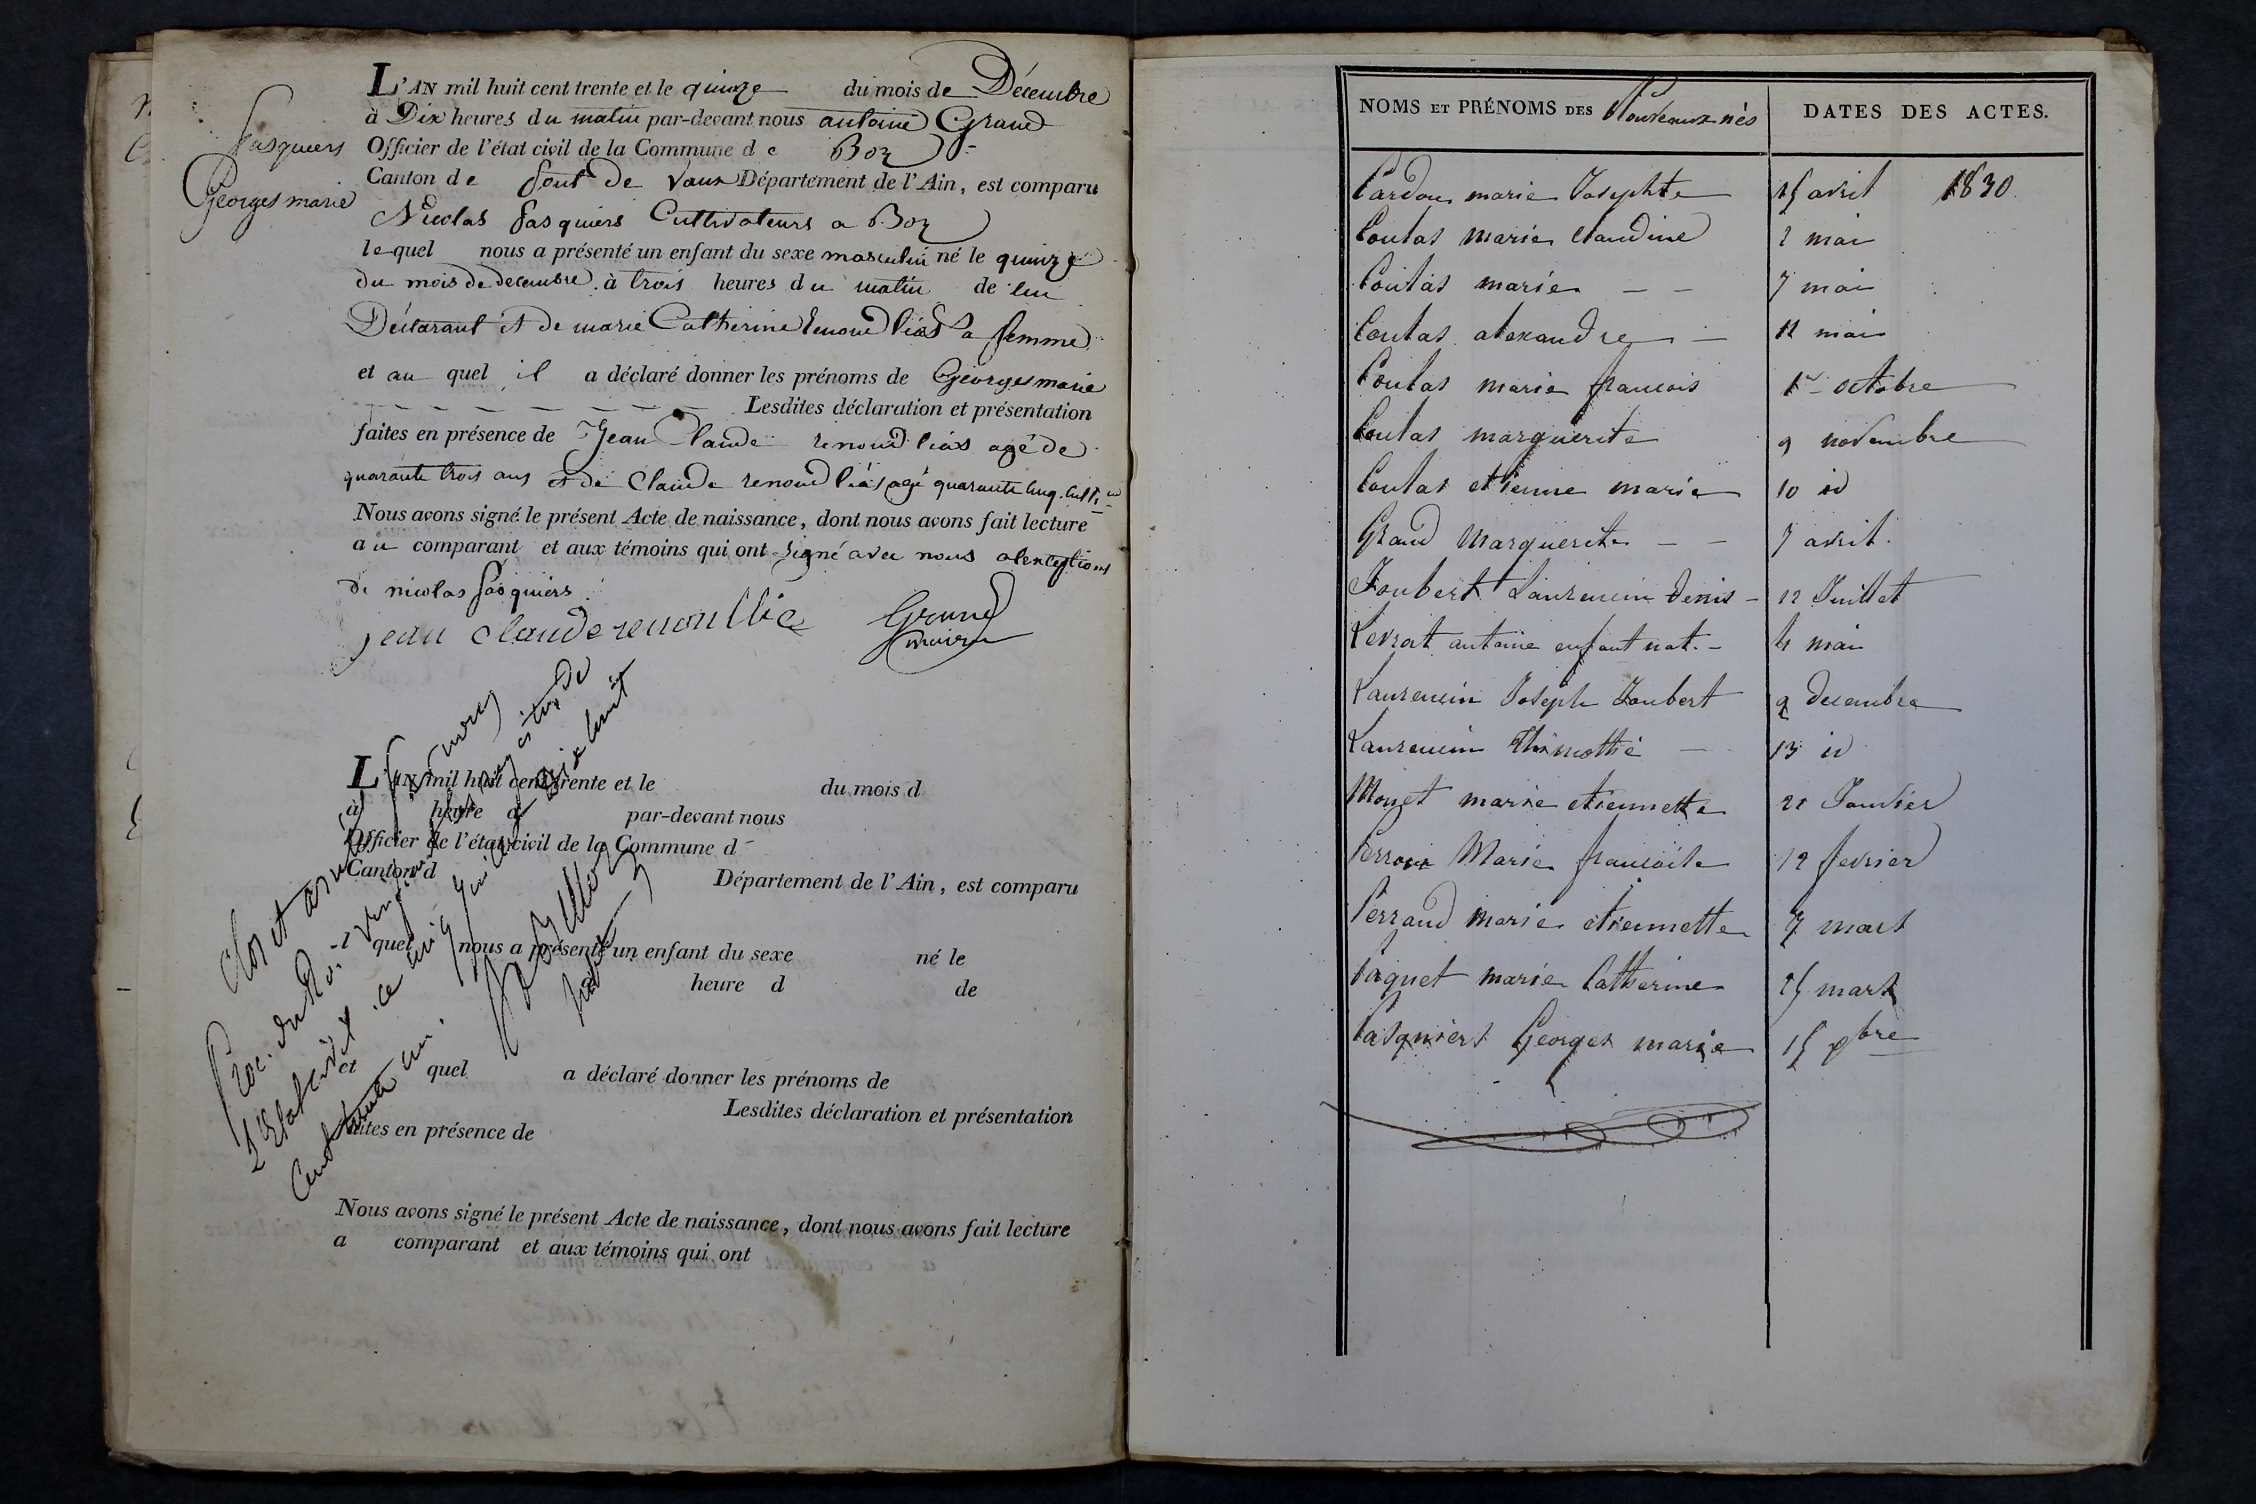 Pasquiers
Georges marie
L'AN mil huit cent trente et le quinze du mois de Décembre
à Dix heures du matin par-devant nous antoine Grand
Officier de l'état civil de la Commune de Boz
Canton de pont De Vaux Département de l'Ain, est comparu
Nicolas Pasquiers Cultivateurs a Boz
lequel nous a présenté un enfant du sexe masculin né le quinze
du mois de decembre à trois heures du matin de lui
Déclarant et de marie Catherine Renoud liás Sa femme
et au quel il a déclaré donner les prénoms de Georges marie
Lesdites déclaration et présentation
faites en présence de Jean Claude renoud liás agé de
quarante trois ans et de Claude renoud liás agé quarante cinq. Cult.
Nous avons signé le présent Acte de naissance, dont nous avons fait lecture
au comparant et aux témoins qui ont signé avec nous
de nicolas Pasquiers
jean claude renoullie Grand
maire
L'AN mil huit cent trente et le du mois d
à heure d par-devant nous
Officier de l'état civil de la Commune d
Canton d Département de l'Ain, est comparu
l quel nous a présenté un enfant du sexe né le
heure d de
et quel a déclaré donner les prénoms de
Lesdites déclaration et présentation
faites en présence de
Nous avons signé le présent Acte de naissance, dont nous avons fait lecture
a comparant et aux témoins qui ont
Clos et arrêté par nous
Proc. du Roi
L'Etat civil ce
Cent trente un.
NOMS ET PRÉNOMS DES Nouveaux nés DATES DES ACTES.
Cardon marie Josephte 15 avril 1830
Coulas marie claudine 2 mai
Coulas marie — — 7 mai
Coulas alexandre — 12 mai
Coulas marie francois 1er octobre
Coulas marguerite 9 novembre
Coulas etienne marie 10 id
Grand Marguerite — — 7 avril
Joubert Laurencin Denis — 12 Juillet
Levrat antoine enfant nat. — 4 mai
Laurencin Joseph Joubert 9 decembre
Laurencin Thimothé — 13 id
Monet marie etiennette 22 Janvier
Perroux Marie francoise 12 fevrier
Perraud marie etiennette 7 mars
Paquet marie Catherine 25 mars
Pasquiers Georges marie 15 xbre